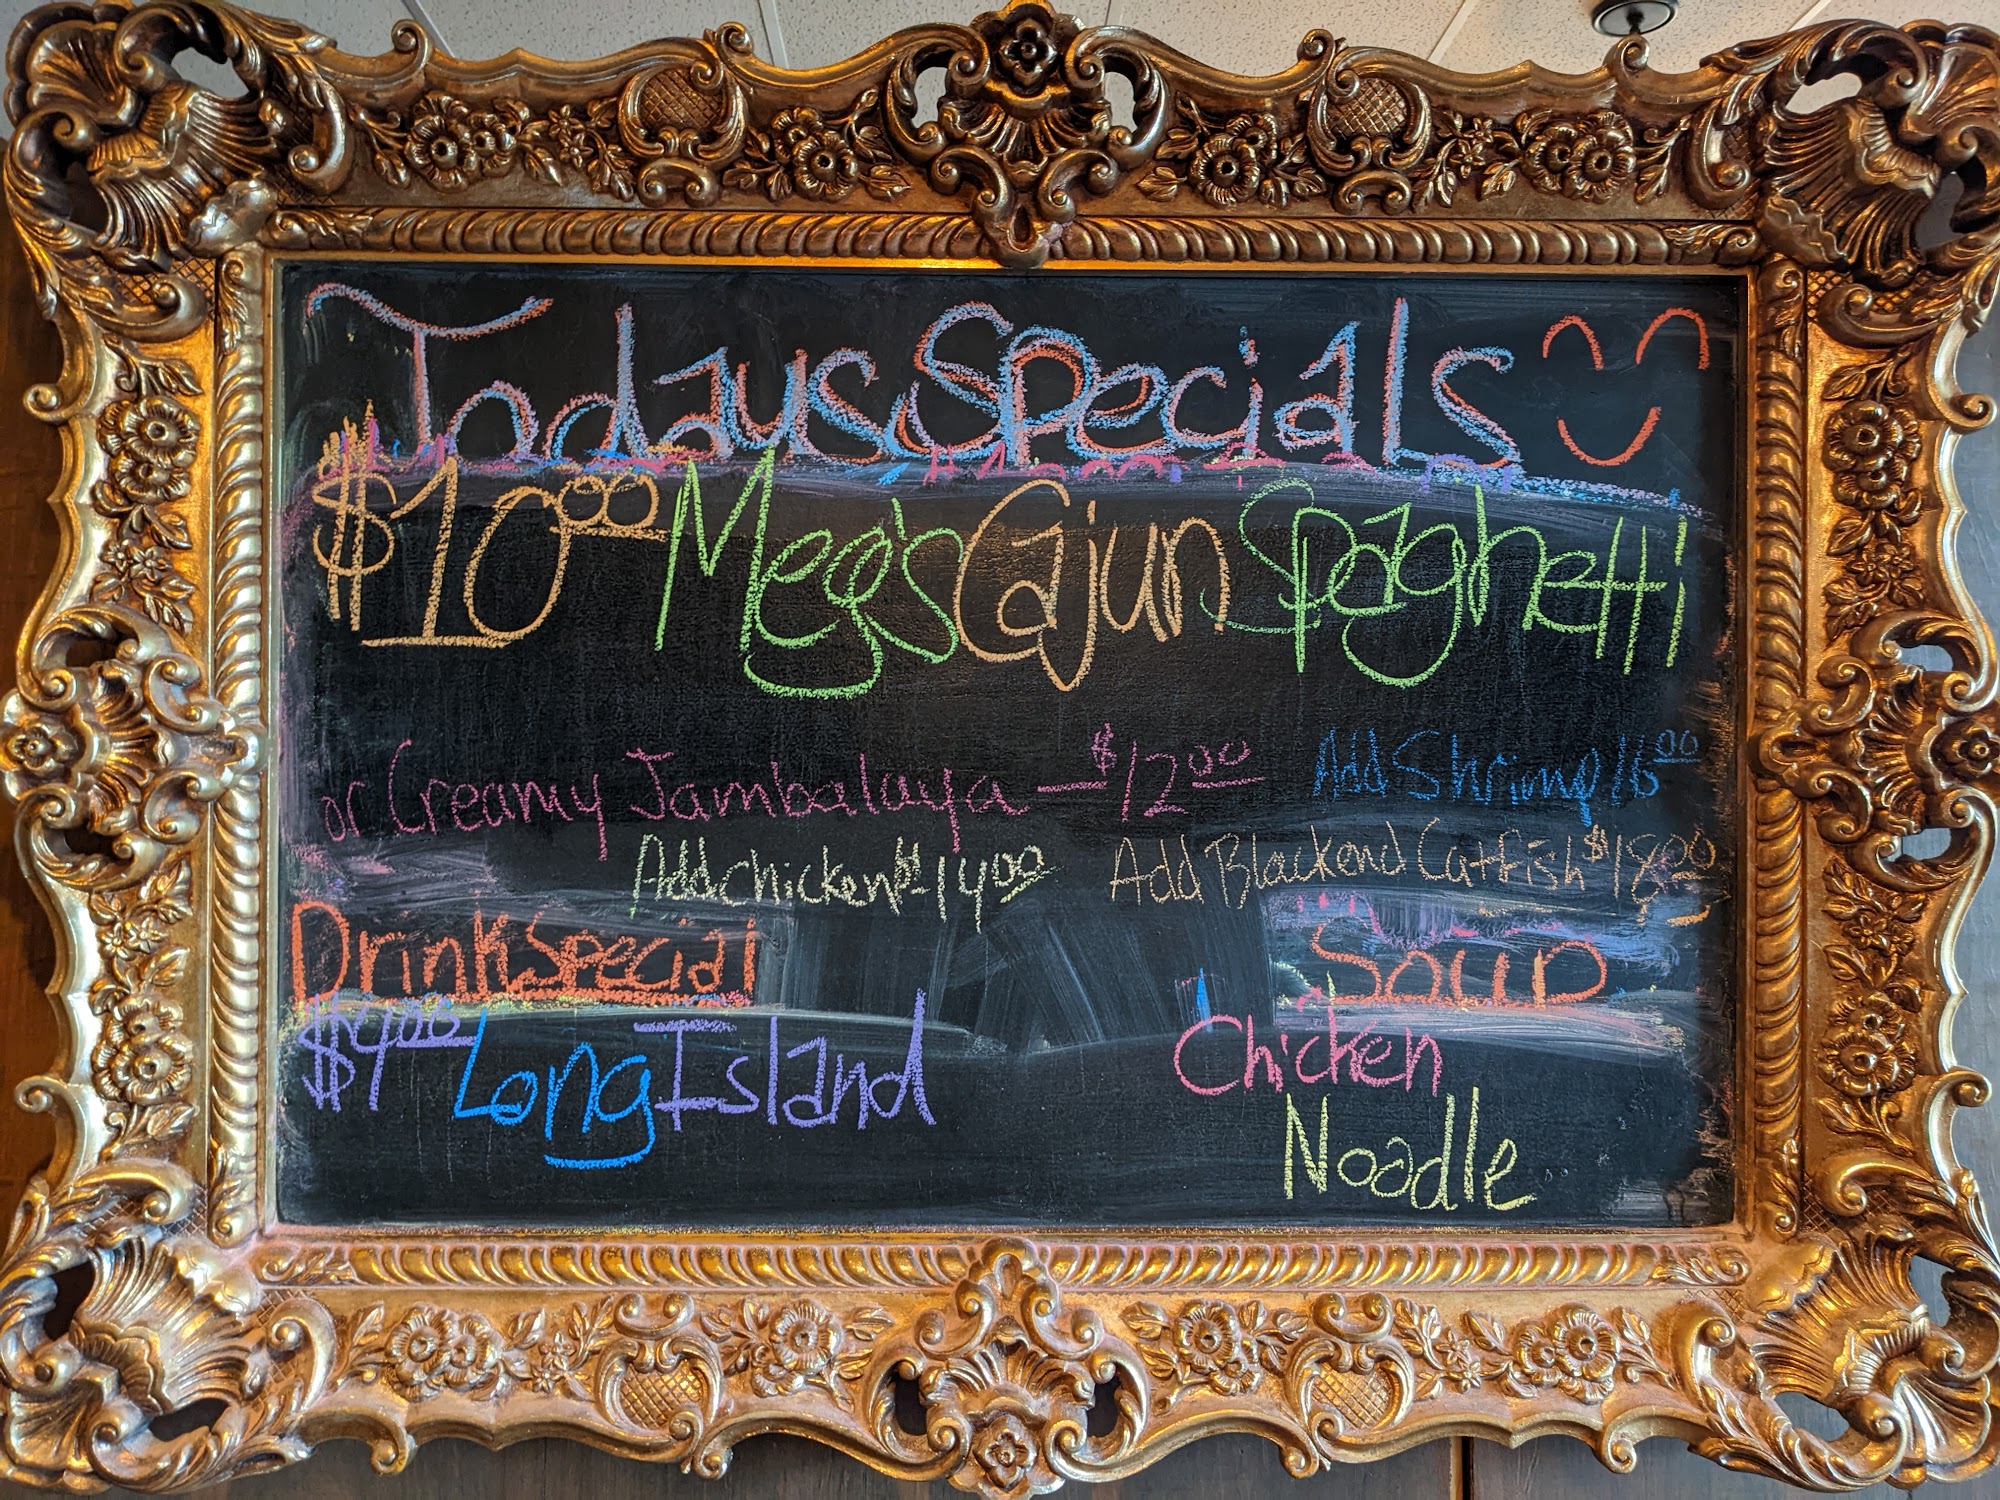 Todays Specials
$10.00 Meg's Cajun Spaghetti
or Creamy Jambalaya - $12.00 Add Shrimp 16.00
Add chicken $14.00 Add Blackend Catfish $18.00
Drink Special Soup
$4.00 Long Island Chicken
Noodle